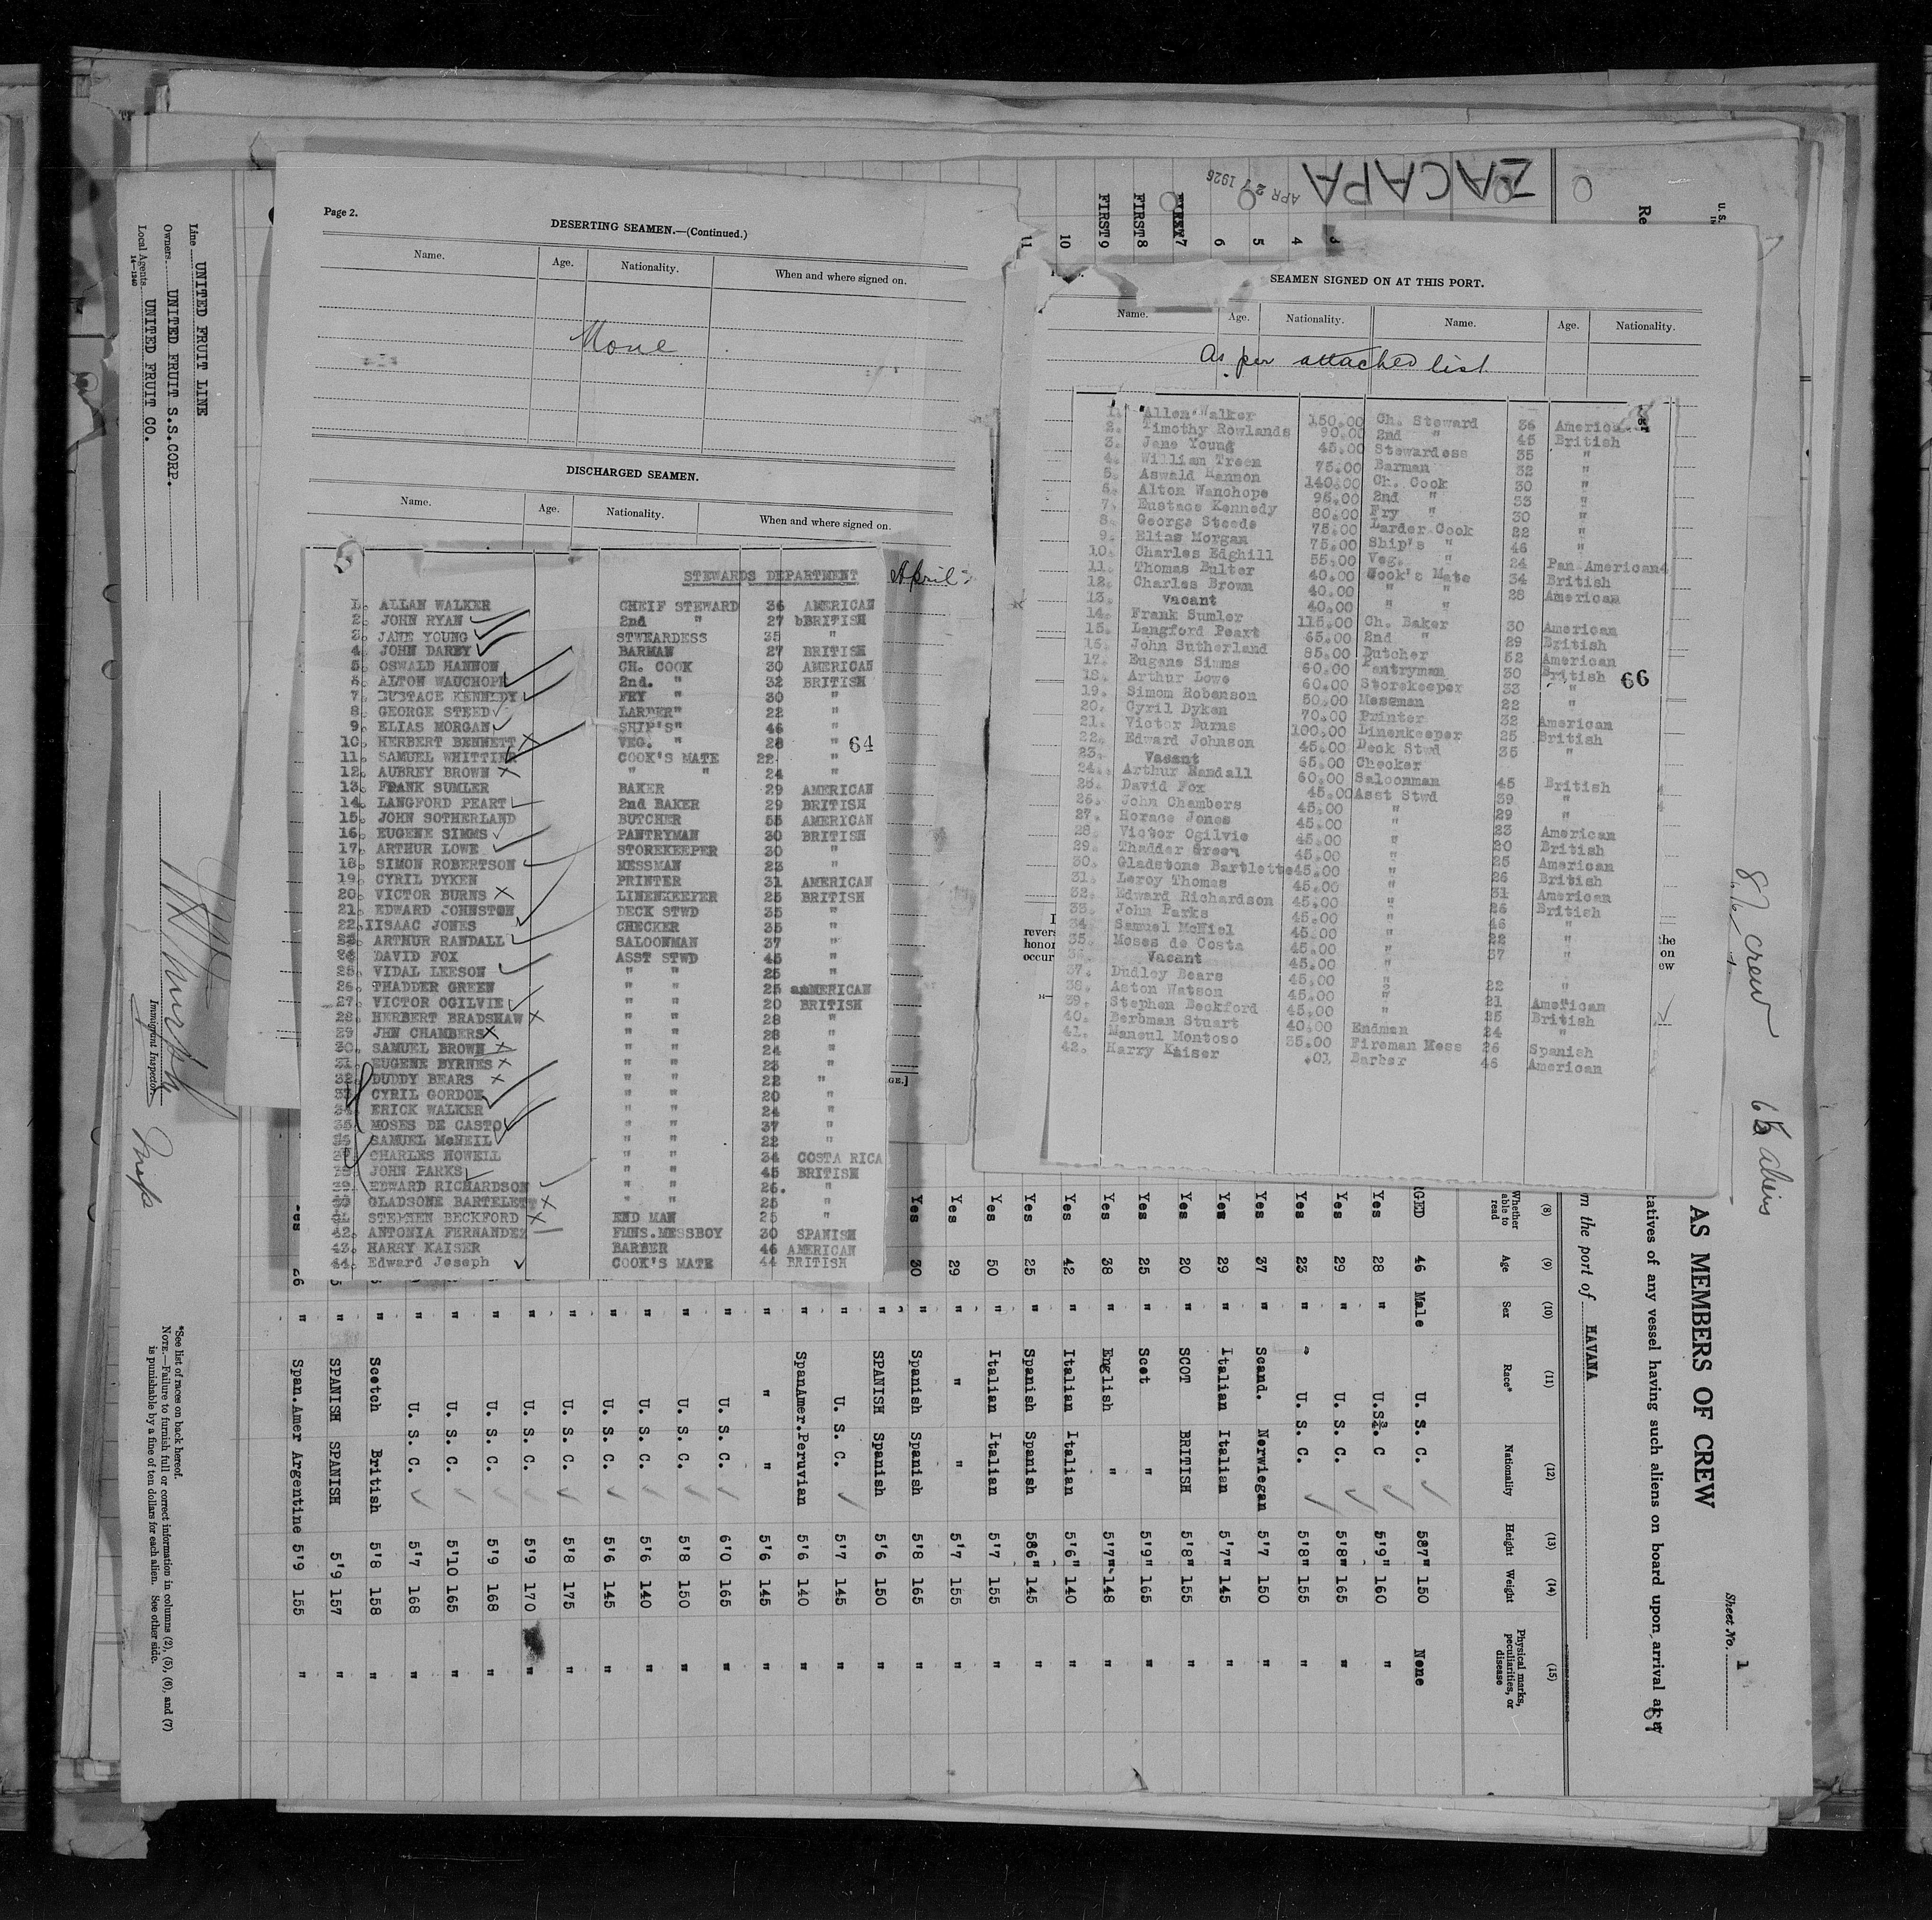 Page 2.
DESERTING SEAMEN.—(Continued.)
Name. Age. Nationality. When and where signed on.
None
DISCHARGED SEAMEN.
Name. Age. Nationality. When and where signed on.
STEWARDS DEPARTMENT April
1. ALLAN WALKER CHEIF STEWARD 36 AMERICAN
2. JOHN RYAN 2nd " 27 bBRITISH
3. JANE YOUNG STWEARDESS 35 "
4. JOHN DARBY BARMAN 27 BRITISH
5. OSWALD HANNON CH. COOK 30 AMERICAN
6. ALTON WAUCHOPE 2nd. " 32 BRITISH
7. EUSTACE KENNEDY FRY " 30 "
8. GEORGE STEED LARDER" 22 "
9. ELIAS MORGAN SHIP'S" 46 "
10. HERBERT BENNETT VEG. " 28 " 64
11. SAMUEL WHITTIER COOK'S MATE 22 "
12. AUBREY BROWN " " 24 "
13. FRANK SUMLER BAKER 29 AMERICAN
14. LANGFORD PEART 2nd BAKER 29 BRITISH
15. JOHN SOTHERLAND BUTCHER 55 AMERICAN
16. EUGENE SIMMS PANTRYMAN 30 BRITISH
17. ARTHUR LOWE STOREKEEPER 30 "
18. SIMON ROBERTSON MESSMAN 23 "
19. CYRIL DYKEN PRINTER 31 AMERICAN
20. VICTOR BURNS LINENKEEPER 25 BRITISH
21. EDWARD JOHNSTON DECK STWD 35 "
22. IISAAC JONES CHECKER 35 "
23. ARTHUR RANDALL SALOONMAN 37 "
24. DAVID FOX ASST STWD 45 "
25. VIDAL LEESON " " 25 "
26. THADDER GREEN " " 25 amMERICAN
27. VICTOR OGILVIE " " 20 BRITISH
28. HERBERT BRADSHAW " " 28 "
29 JHN CHAMBERS " " 28 "
30. SAMUEL BROWN " " 24 "
31. EUGENE BYRNES " " 23 "
32. DUDDY BEARS " " 22 "
33. CYRIL GORDON " " 20 "
34. ERICK WALKER " " 24 "
35. MOSES DE CASTO " " 37 "
36. SAMUEL McNEIL " " 22 "
37. CHARLES HOWELL " " 34 COSTA RICA
38. JOHN PARKS " " 45 BRITISH
39. EDWARD RICHARDSON " " 26. "
40 GLADSONE BARTELETT " " 25 "
41. STEPHEN BECKFORD END MAN 25 "
42. ANTONIA FERNANDEZ FMNS.MESSBOY 30 SPANISH
43. HARRY KAISER BARBER 46 AMERICAN
44. Edward Joseph COOK'S MATE 44 BRITISH
SEAMEN SIGNED ON AT THIS PORT.
Name. Age. Nationality. Name. Age. Nationality.
As per attached list
1. Allen Walker 150.00 Ch. Steward 36 American
2. Timothy Rowlands 90.00 2nd " 45 British
3. Jane Young 45.00 Stewardess 35 "
4. William Treen 75.00 Barman 32 "
5. Aswald Hannon 140.00 Ch. Cook 30 "
6. Alton Wanchope 95.00 2nd " 33 "
7. Eustace Kennedy 80.00 Fry " 30 "
8. George Steede 75.00 Larder Cook 22 "
9. Elias Morgan 75.00 Ship's " 46 "
10. Charles Edghill 55.00 Veg. " 24 Pan American
11. Thomas Bulter 40.00 Cook's Mate 34 British
12. Charles Brown 40.00 " " 28 American
13. Vacant 40.00 " "
14. Frank Sumler 115.00 Ch. Baker 30 American
15. Langford Peart 65.00 2nd " 29 British
16. John Sutherland 85.00 Butcher 52 American
17. Eugene Simms 60.00 Pantryman 30 British
18. Arthur Lowe 60.00 Storekeeper 33 " 66
19. Simom Robenson 50.00 Messman 22 "
20. Cyril Dyken 70.00 Printer 32 American
21. Victor Burns 100.00 Linenkeeper 25 British
22. Edward Johnson 45.00 Deck Stwd 35 "
23. Vacant 65.00 Checker
24. Arthur Randall 60.00 Saloonman 45 British
25. David Fox 45.00 Asst Stwd 39 "
26. John Chambers 45.00 " 29 "
27. Horace Jones 45.00 " 23 American
28. Victor Ogilvie 45.00 " 20 British
29. Thadder Green 45.00 " 25 American
30. Gladstone Bartlette 45.00 " 26 British
31. Leroy Thomas 45.00 " 31 American
32. Edward Richardson 45.00 " 26 British
33. John Parks 45.00 " 46 "
34. Samuel McNiel 45.00 " 22 "
35. Moses de Costa 45.00 " 37 "
36. Vacant 45.00 "
37. Dudley Bears 45.00 " 22 "
38. Aston Watson 45.00 " 21 American
39. Stephen Beckford 45.00 " 25 British
40. Berbman Stuart 40.00 Endman 24 "
41. Maneul Montoso 35.00 Fireman Mess 26 Spanish
42. Harry Kaiser .01 Barber 46 American
ZACAPA
APR 27 1926
FIRST 9
FIRST 8
7
6
5
4
3
10
11
Line UNITED FRUIT LINE
Owners UNITED FRUIT S.S.CORP.
Local Agents UNITED FRUIT CO.
14—1240
Immigrant Inspector.
Sheet No. 1
AS MEMBERS OF CREW
atives of any vessel having such aliens on board upon arrival at
m the port of HAVANA
(8) Whether able to read
(9) Age
(10) Sex
(11) Race*
(12) Nationality
(13) Height
(14) Weight
(15) Physical marks, peculiarities, or disease
46 Male U. S. C. 587" 150 None
Yes 28 " U.S. C 5'9" 160 "
Yes 29 U. S. C. 5'8" 165 "
Yes 23 " U. S. C. 5'8" 155 "
Yes 37 " Scand. Norwiegan 5'7 150 "
Yes 29 " Italian Italian 5'7" 145 "
Yes 20 " SCOT BRITISH 5'8" 155 "
Yes 25 " Scot " 5'9" 165 "
Yes 38 " English " 5'7" 148 "
Yes 42 " Italian Italian 5'6" 140 "
Yes 25 " Spanish Spanish 586" 145 "
Yes 50 " Italian Italian 5'7 155 "
Yes 29 " " " 5'7 155 "
Yes 30 " Spanish Spanish 5'8 165 "
" SPANISH Spanish 5'6 150 "
" U. S. C. 5'7 145 "
" SpanAmer. Peruvian 5'6 140 "
" " " 5'6 145 "
" U. S. C. 6'0 165 "
" U. S. C. 5'8 150 "
" U. S. C. 5'6 140 "
" U. S. C. 5'6 145 "
" U. S. C. 5'8 175 "
" U. S. C. 5'9 170 "
" U. S. C. 5'9 168 "
" U. S. C. 5'10 165 "
" U. S. C. 5'7 168 "
" Scotch British 5'8 158 "
" SPANISH SPANISH 5'9 157 "
26 " Span.Amer Argentine 5'9 155 "
*See list of races on back hereof.
NOTE.—Failure to furnish full or correct information in columns (2), (5), (6), and (7)
is punishable by a fine of ten dollars for each alien. See other side.
crew
aliens